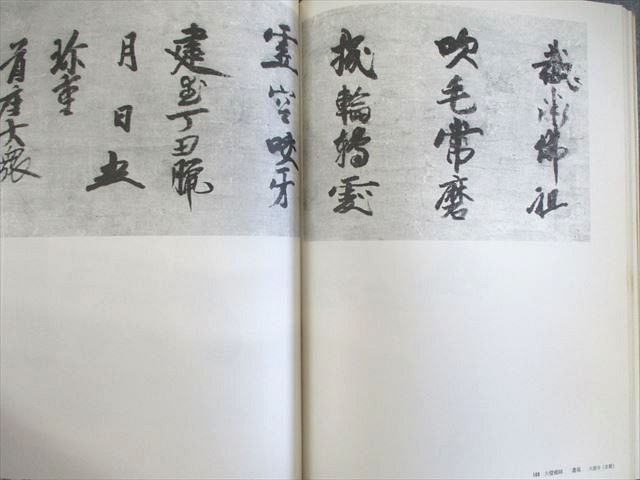 截断佛祖
吹毛常磨
機輪轉處
虚空咬牙
建武丁丑臘
月日
珍重
首座大衆
大燈國師 遺偈 大徳寺(京都)